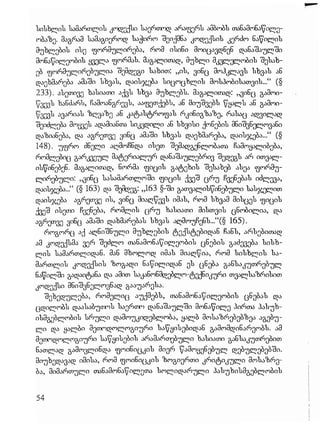 სისხლის სამართლის კოდექსი საერთოდ არაფერს ამბობს თანამონაწილე-
ობაზე, მაგრამ სამაგიეროდ საჭირო შეიქმნა კოდექსის კერძო ნაწილის
მუხლების ისე ფორმულირება, რომ ისინი მოიცავდნენ დანაშაულში
მონაწილეობის ყველა ფორმას. მაგალითად, მუხლი მკვლელობის შესახ-
ებ ფორმულირებულია შემდეგი სახით: „ის, ვინც მოჰკლავს სხვას ან
დაეხმარება ამაში სხვას, დაისჯება სიცოცხლის მოსპობისათვის...“ (§
233). ასეთივე ხასიათი აქვს სხვა მუხლებს. მაგალითად: „ვინც გამოი-
წვევს ხანძარს, ჩამოანგრევს, ააფეთქებს, ან მოუშვებს წყალს ან გამოი-
წვევს ავარიას ზღვაზე ან კატასტროფას რკინიგზაზე, რასაც ადვილად
შეიძლება მოყვეს ადამიანთა სიკვდილი ან სხვისი ქონების მნიშვნელოვანი
დაზიანება, და აგრეთვე ვინც ამაში სხვას დაეხმარება, დაისჯება...“ (§
148). უფრო ძნელი აღმოჩნდა ისეთ შემადგენლობათა ჩამოყალიბება,
რომლებიც გარკვეულ მატერიალურ დანაშაულებრივ შედეგს არ ითვალ-
ისწინებენ. მაგალითად, ნორმა ფიცის გატეხის შესახებ ასეა ფორმუ-
ლირებული: „ვინც სასამართლოში ფიცის ქვეშ ცრუ ჩვენებას იძლევა,
დაისჯება...“ (§ 163) და შემდეგ: „163 §-ში გათვალისწინებული სასჯელით
დაისჯება აგრეთვე ის, ვინც მიაღწევს იმას, რომ სხვამ მისცეს ფიცის
ქვეშ ისეთი ჩვენება, რომლის ცრუ ხასიათი მისთვის ცნობილია, და
აგრეთვე ვინც ამაში დახმარებას სხვას აღმოუჩენს...“(§ 165).
როგორც აქ აღნიშნული მუხლების ტექსტებიდან ჩანს, არსებითად
ამ კოდექსმა ვერ შეძლო თანამონაწილეობის ცნების გაძევება სისხ-
ლის სამართლიდან. მან მხოლოდ იმას მიაღწია, რომ სისხლის სა-
მართლის კოდექსის ზოგადი ნაწილიდან ეს ცნება განსაკუთრებულ
ნაწილში გადაიტანა და ამით საკანონმდებლო-ტექნიკური თვალსაზრისით
კოდექსი მნიშვნელოვნად გააუარესა.
შეხედულება, რომელიც აუქმებს, თანამონაწილეობის ცნებას და
ცდილობს დაასაბუთოს საერთო დანაშაულში მონაწილე პირთა პასუხ-
ისმგებლობის სრული დამოუკიდებლობა, ყალბ მოსაზრებებზეა აგებუ-
ლი და ყალბი მეთოდოლოგიური საწყისებიდან გამომდინარეობს. ამ
მეთოდოლოგიური საწყისების არამართებული ხასიათი განსაკუთრებით
ნათლად გამოვლინდა ფოინიცკის მიერ წამოყენებულ დებულებებში.
მიუხედავად იმისა, რომ ფოინიცკის ზოგიერთი კრიტიკული მოსაზრე-
ბა, მიმართული თანამონაწილეთა სოლიდარული პასუხისმგებლობის
54